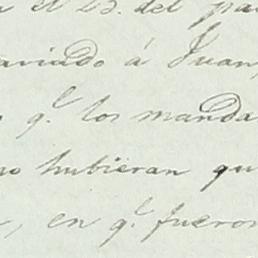 el 25. del pa
ariado á Juan,
q.^e los manda
no hubieran qu
, en q.^e fueron